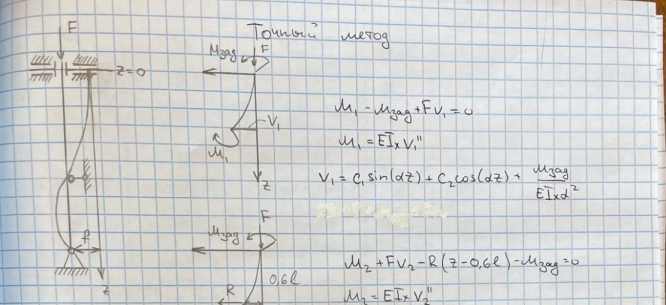 Точный метод
F
z=0
Mзад F
V₁
M₁
z
M₁ - Mзад + FV₁ = 0
M₁ = EIxV₁''
V₁ = C₁ sin(αz) + C₂ cos(αz) + Mзад / EIxα²
F
Mзад
0,6l
R
f
z
M₂ + FV₂ - R(z-0,6l) - Mзад = 0
M₂ = EIxV₂''